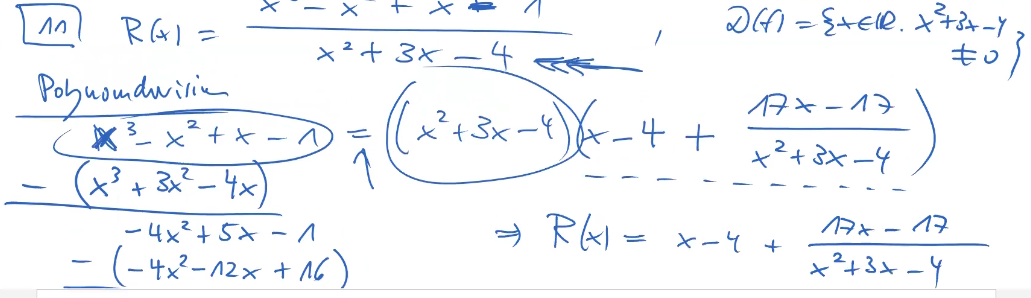 11 R(x) = x³ - x² + x - 1 / x² + 3x - 4 , D(f) = {x ∈ ℝ. x² + 3x - 4 ≠ 0}
Polynomdivision
x³ - x² + x - 1 = (x² + 3x - 4)(x - 4 + (17x - 17)/(x² + 3x - 4))
- (x³ + 3x² - 4x)
- 4x² + 5x - 1
⇒ R(x) = x - 4 + (17x - 17)/(x² + 3x - 4)
- (-4x² - 12x + 16)